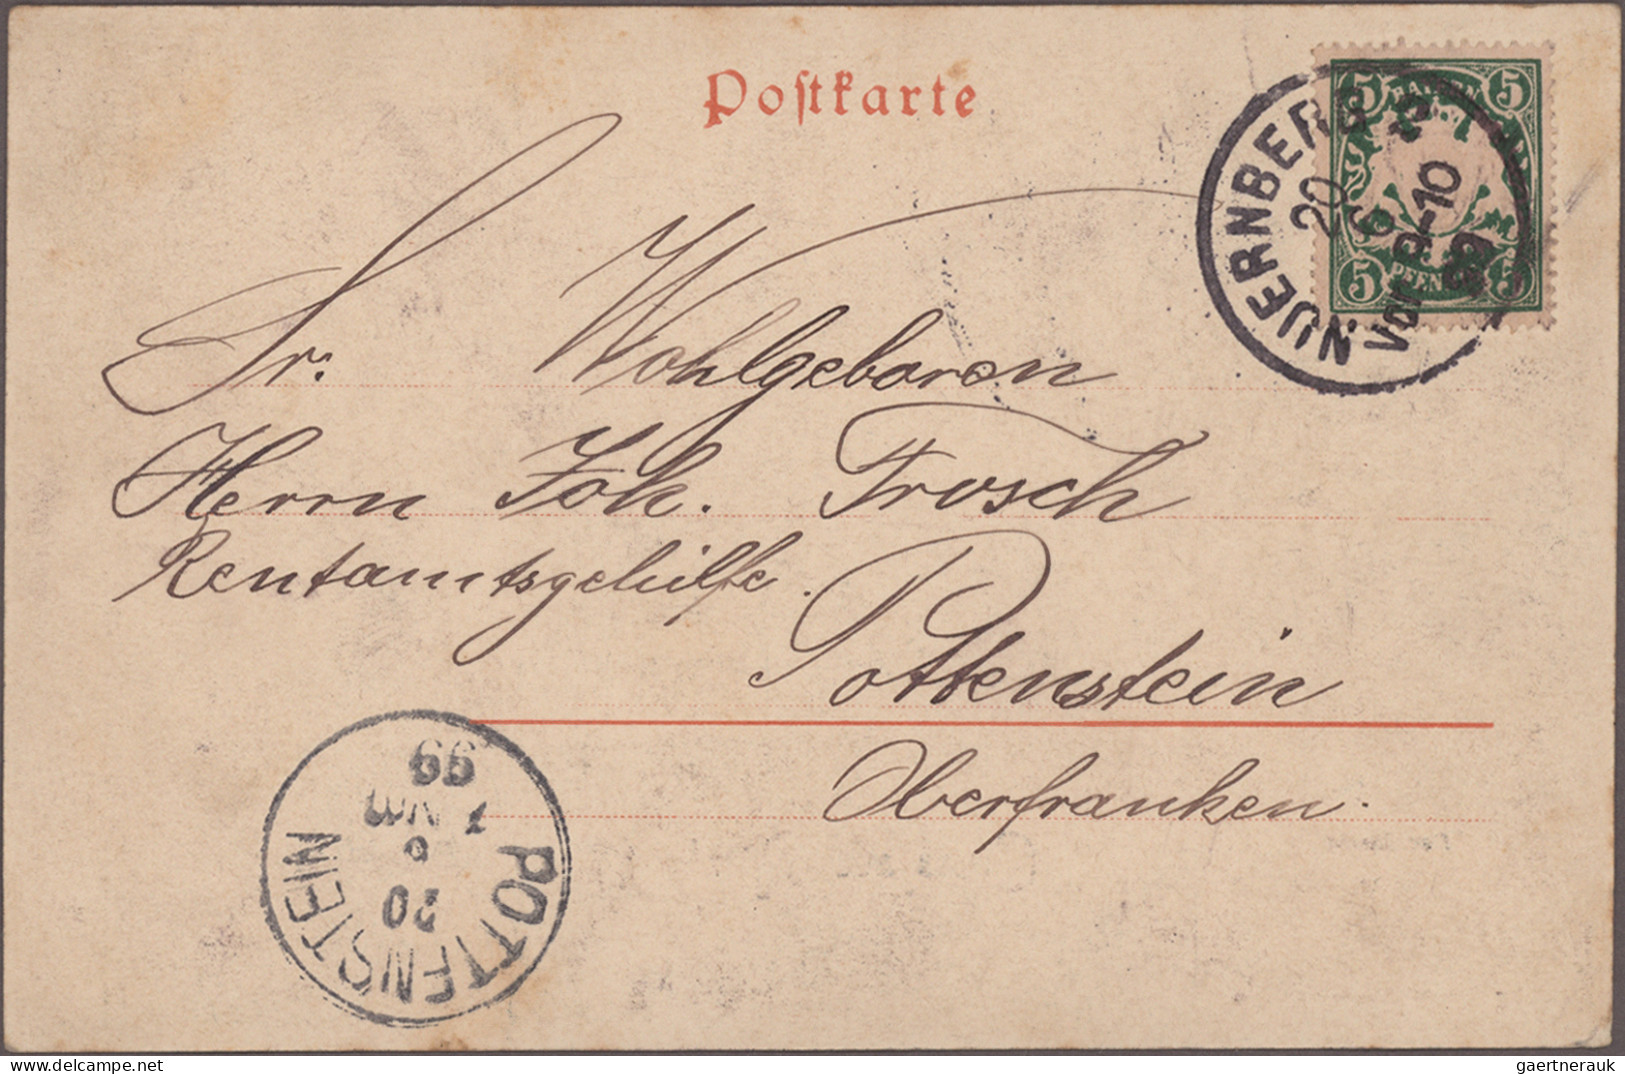 Postkarte
5 BAYERN 5
5 PFENNIG 5
NUERNBERG 2
20
6
Vor 9-10
99
Sr. Wohlgeboren
Herrn Joh. Frosch
Rentamtsgehilfe.
Pottenstein
Oberfranken.
POTTENSTEIN
20
6
NM
99
delcampe.net
gaertnerauk